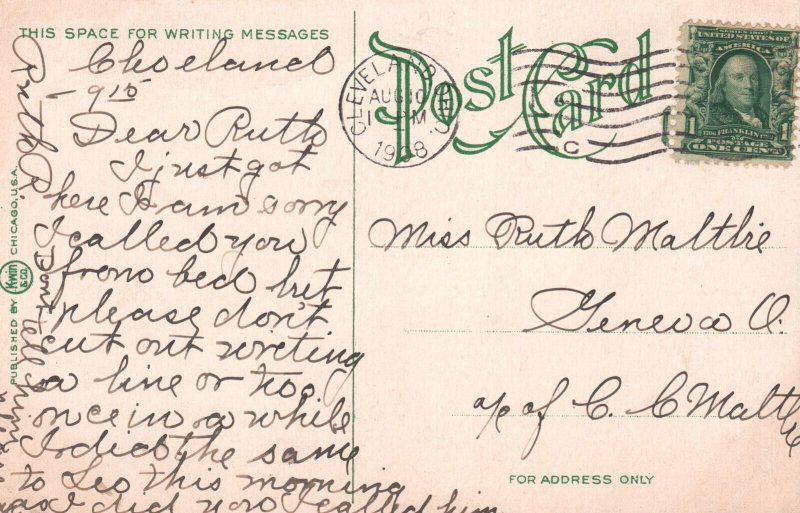 THIS SPACE FOR WRITING MESSAGES
Cleveland
- 9 15
Dear Ruth
I just got
here I am sorry
I called you
from bed but
please don't
cut out writing
a line or too
once in a while
I did the same
to Leo this morning
as I did you I called him
Ruth R.
Dont tell him
PUBLISHED BY KWIN & CO. CHICAGO, U.S.A.
Post Card
CLEVELAND, O.
AUG 10
1 PM
1908
C
SERIES 1902
UNITED STATES OF
AMERICA
FRANKLIN
POSTAGE
1 ONE CENT 1
Miss Ruth Maltbie
Geneva O.
c/o of C. C Maltbie
FOR ADDRESS ONLY